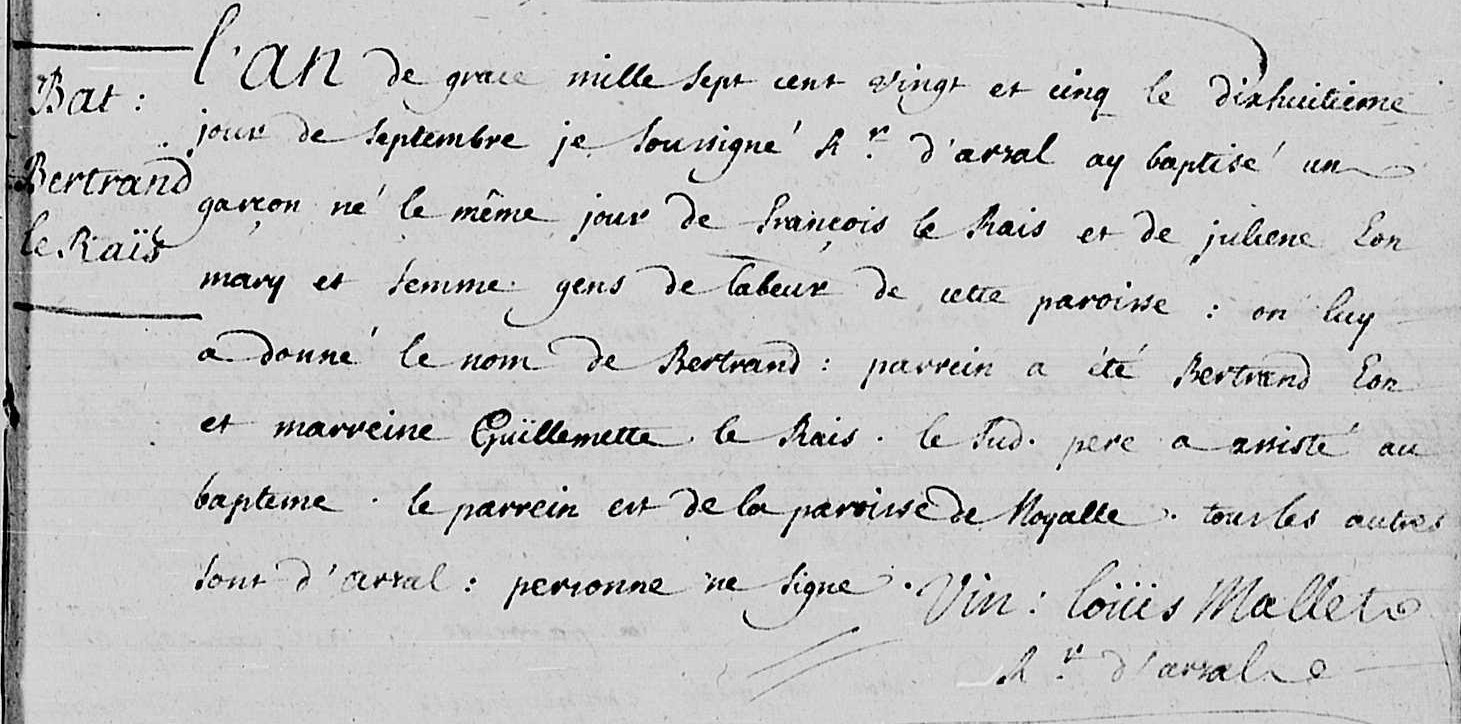 Bat :
Bertrand
le Raïs
l'an de grace mille sept cent vingt et cinq le dixhuitieme
jour de septembre je soussigné R.r d'arzal ay baptisé un
garçon né le même jour de françois le Rais et de juliene Eon
mary et femme gens de labeur de cette paroisse : on luy
a donné le nom de Bertrand : parrein a été Bertrand Eon
et marreine Guïllemette le Rais . le sud. pere a assisté au
bapteme . le parrein est de la paroisse de Noyalle . tous les autres
sont d'arzal : personne ne signe . Vin : loüis Mallet
R.r d'arzal